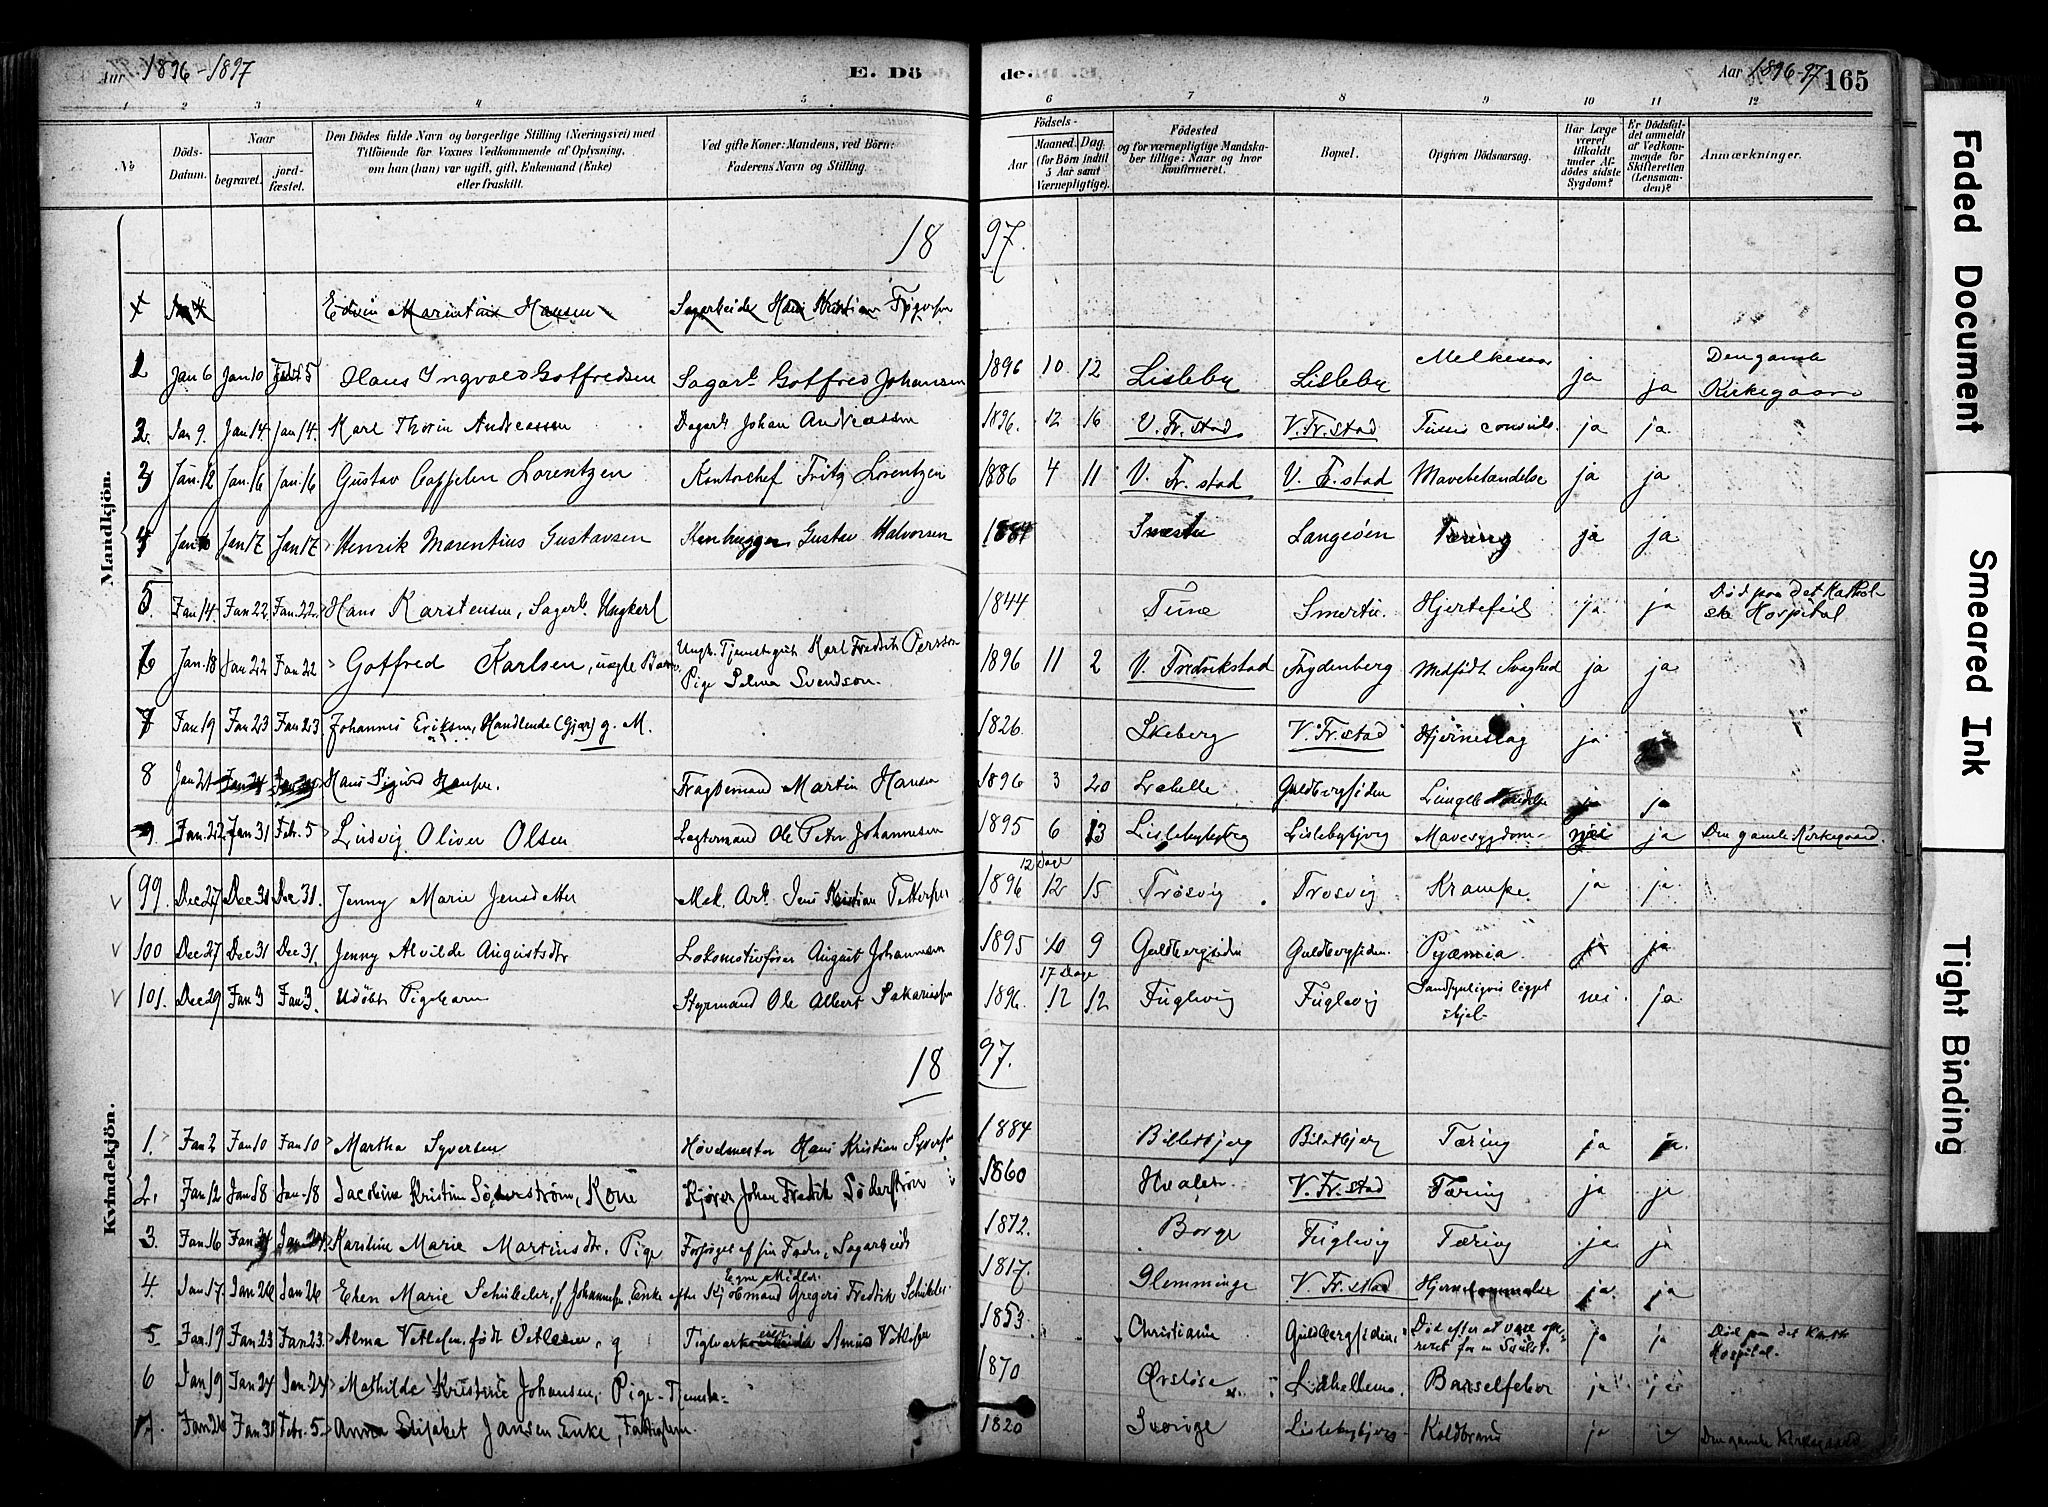 Aar 1896-1897
E. Dö
de.
Aar 1896-97
165
1 2 3 4 5 6 7 8 9 10 11 12
No
Döds-Datum.
Naar
begravet.
jord-fæstet.
Den Dödes fulde Navn og borgerlige Stilling (Næringsvei) med
Tilföiende for Voxnes Vedkommende af Oplysning,
om han (hun) var ugift, gift, Enkemand (Enke)
eller fraskilt.
Ved gifte Koner: Mandens, ved Börn:
Faderens Navn og Stilling.
Födsels-
Aar
Maaned. (for Börn indtil 5 Aar samt Værnepligtige).
Dag.
Födested
og for værnepligtige Mandska-
ber tillige: Naar og hvor
konfirmeret.
Bopæl.
Opgiven Dödsaarsag.
Har Læge været tilkaldt under Af-dödes sidste Sygdom?
Er Dödsfal-det anmeldt af Vedkom-mende for Skifteretten (Lensman-den)?
Anmærkninger.
Mandkjön.
18 97.
Edvin Marentius Hansen Sagarbeider Hans Kristian
1 Jan 6 Jan 10 5 Hans Ingvald Gotfredsen Sagarb. Gotfred Johansen 1896 10 12 Lisleby Lisleby ja ja Den gamle Kirkegaard
2. Jan 9. Jan 14 Jan 14. Karl Thorin Andreassen Dagarb. Johan Andreassen 1896. 12 16 V. Fr. stad V. Fr. stad ja ja
3 Jan. 12 Jan. 16 Jan. 16 Gustav Cappelen Lorentzen Kontorchef Fritz Lorentzen 1886 4 11 V. Fr. stad V. F. stad Mavebetændelse ja ja
4 Jan 17 Jan 17 Henrik Marentius Gustavsen Stenhugger Gustav Halvorsen 1884 Langeöen Tæring ja ja
5. Jan 14. Jan 22 Jan. 22. Hans Karstensen, Sagarb. Ungkarl 1844 Tune Hjertefeil ja ja Död paa det Kathol-ske Hospital
6 Jan. 18 Jan 22 Jan 22 Gotfred Karlsen, uægte Barn Ungk. Tjenestegut Karl Fredrik Persson Pige Selma Svendson. 1896 11 2 V. Fredrikstad Trydenberg Medfödt Svaghed ja ja
7 Jan 19 Jan 23 Jan 23 Johannes Eriksen, Handlende (Gjær) g. M. 1826. Skeberg V. Fr. stad Hjerneslag ja
8 Jan 21 Jan 24 Jan 24 Hans Sigurd Hansen. Fragtemand Martin Hansen 1896 3 20 Guldbergsiden ja
9. Jan. 22. Jan 31 Feb. 5 Ludvig Oliver Olsen Lagtemand Ole Peter Johannesen 1895 6 13 Lislebybjerg Lislebybjerg Mavesygdom nei ja Den gamle Kirkegaard.
99. Dec 27 Dec 31 Dec 31. Jenny Marie Jensdatter Mek. Arb. Jens Kristian Pettersen 1896 12 Dage 12 15 Trosvig Trosvig Krampe ja ja
100 Dec 27 Dec 31 Dec 31. Jenny Alvilde Augustsdtr Lokomotivförer August Johannesen 1895 10 9 Guldbergsiden Guldbergsiden. Pyæmia ja ja
101. Dec 29 Jan 3 Jan 3. Udöbt Pigebarn Styrmand Ole Albert Sakariassen 1896. 17 Dage 12 12 Fuglevig Fuglevig Sandsynligvis ligget ihjel nei. ja.
Kvindekjön.
18 97.
1. Jan 2 Jan 10 Jan 10 Martha Syversen Hovedmester Hans Kristian Syversen 1884 Billetbjerg Biletbjerg Tæring ja ja.
2. Jan 12 Jan 18 Jan. 18 Jacobine Kristine Söderström, Kone Kjörer Johan Fredrik Söderström 1860 Hvaler V. Fr. stad Tæring ja ja
3. Jan 16 Jan 24 Jan 24 Karoline Marie Martinsdtr, Pige Forsörget af sin Fader, Sagarbeider 1872. Borge Fuglevig Tæring ja ja
4 Jan. 17 Jan 26 Jan 26 Ellen Marie Schübeler, f Johannesen, Enke efter Kjöbmand Gregers Fredrik Schübeler Egne Midler. 1817. Glemminge V. Fr. stad ja. ja
5 Jan. 19 Jan 23 Jan 23. Alma Vetlesen. födt g Amund Vetlesen 1853 Christiania Guldbergsiden Död efter at være ope-reret for en Svulst. ja ja Död paa det Kath. Hospital.
6 Jan 19 Jan 24 Jan 24 Mathilde Kristine Johansen, Pige-Tjeneste- 1870 Barselfeber ja ja
7. Jan 26 Jan 31 Feb. 5. Anna Elisabet Jansen Enke, Fattiglem 1820 Sverige Lislebybjerg Koldbrand ja Den gamle Kirkegaard
Faded Document
Smeared Ink
Tight Binding